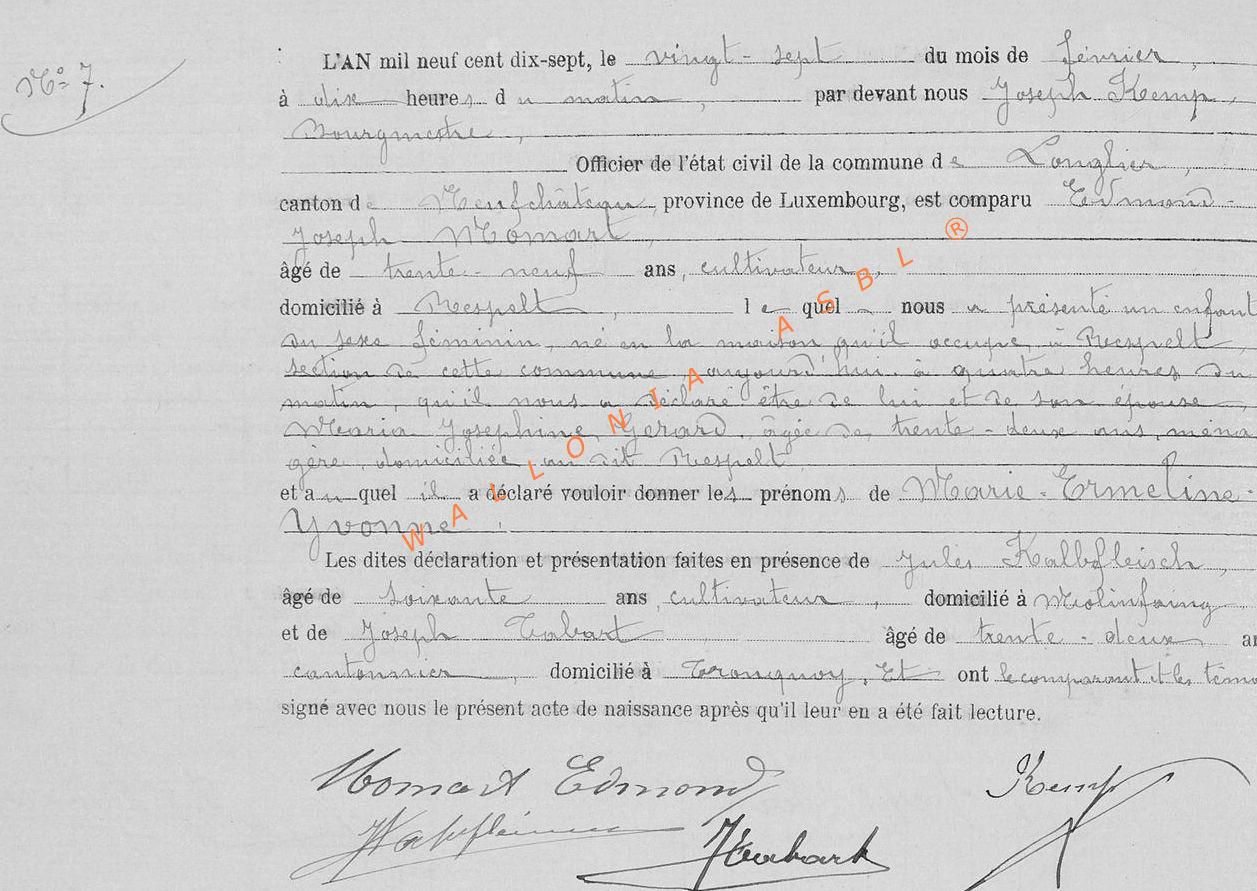 N° 7.
L'AN mil neuf cent dix-sept, le vingt-sept du mois de février,
à dix heures du matin, par devant nous Joseph Kemp,
Bourgmestre,
Officier de l'état civil de la commune de Longlier,
canton de Neufchâteau, province de Luxembourg, est comparu Edmond-
Joseph Momart,
âgé de trente-neuf ans, cultivateur,
domicilié à Respelt, lequel nous a présenté un enfant
du sexe féminin, né en la maison qu'il occupe, à Respelt,
section de cette commune, aujourd'hui à quatre heures du
matin, qu'il nous a déclaré être de lui et de son épouse,
Maria Josephine Gerard, âgée de trente-deux ans, ména
gère, domiciliée au dit Respelt
et auquel il a déclaré vouloir donner les prénoms de Marie-Ermeline-
Yvonne.
Les dites déclaration et présentation faites en présence de Jules Kalbfleisch,
âgé de soixante ans, cultivateur, domicilié à Molinfaing
et de Joseph Tabart âgé de trente-deux an
cantonnier, domicilié à Tronquoy. Et ont le comparant et les témo
signé avec nous le présent acte de naissance après qu'il leur en a été fait lecture.
Momart Edmond Kemp
WALLONIA ASBL ®